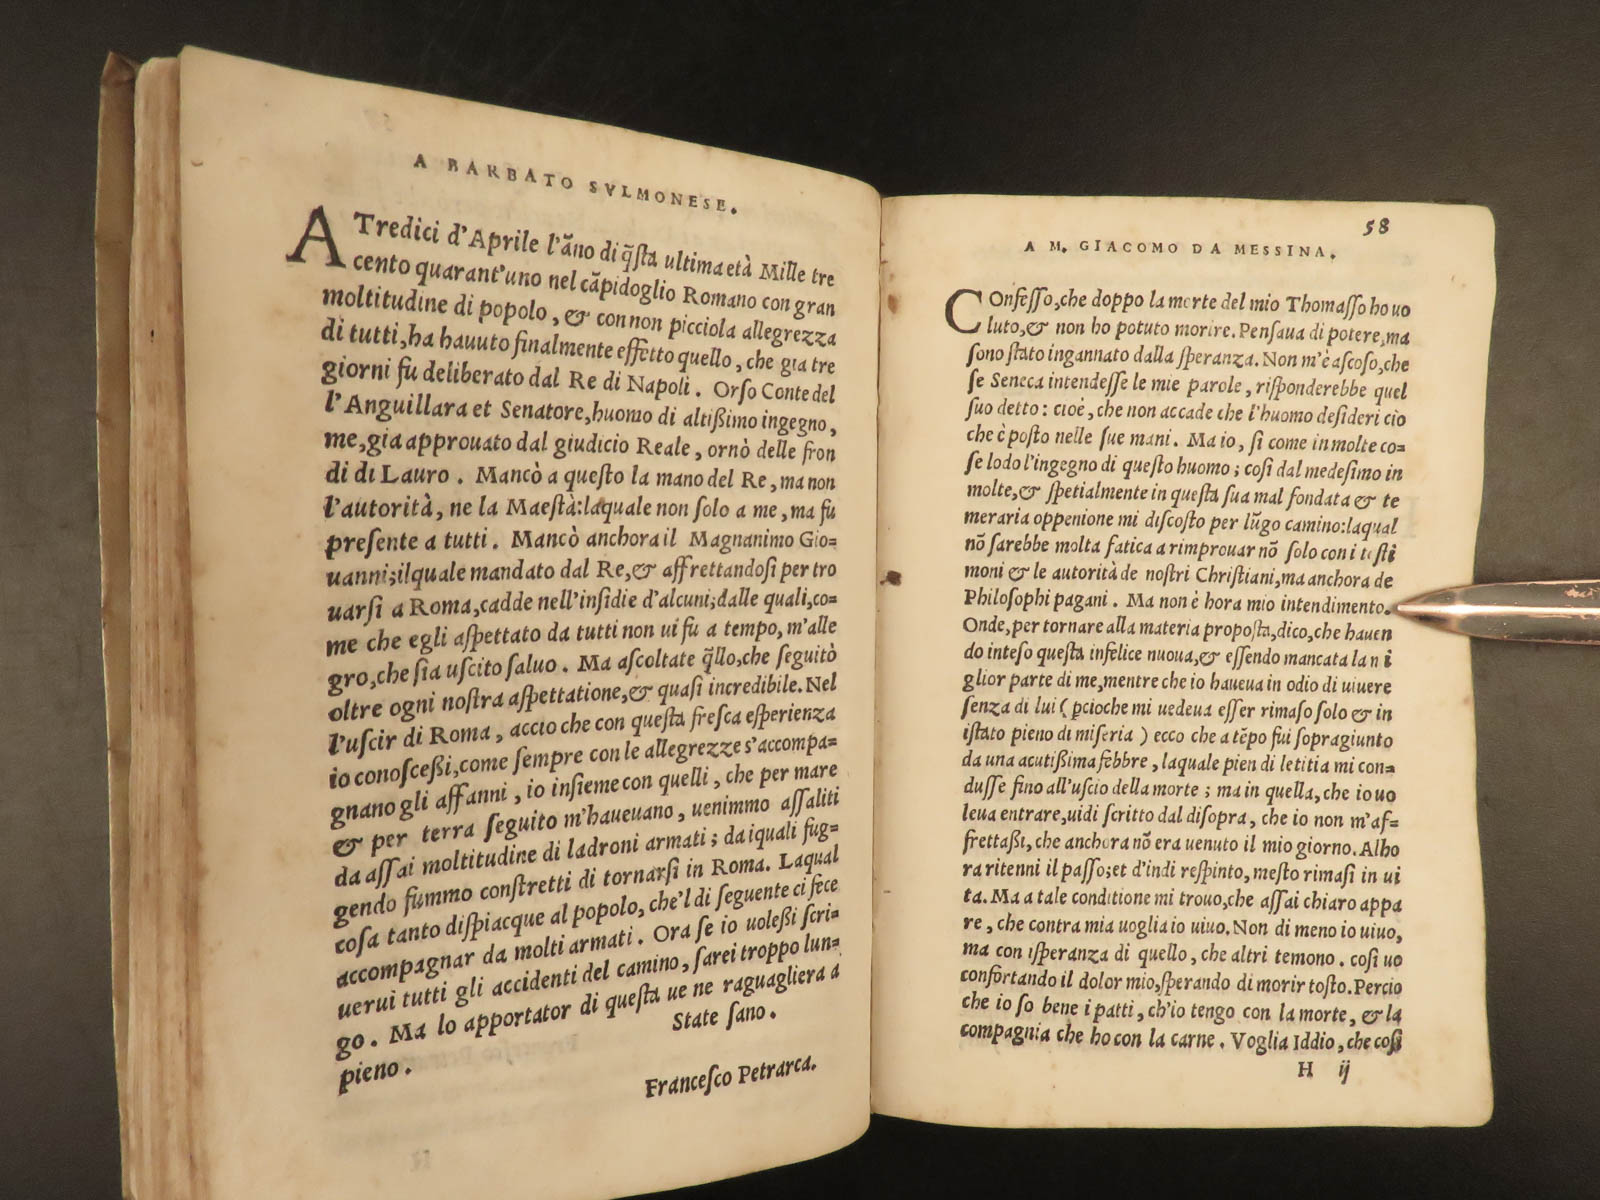 A BARBATO SVLMONESE.
A Tredici d'Aprile l'ãno di q̃sta ultima età Mille tre
cento quarant'uno nel cãpidoglio Romano con gran
moltitudine di popolo, & con non picciola allegrezza
di tutti, ha hauuto finalmente effetto quello, che gia tre
giorni fu deliberato dal Re di Napoli. Orso Conte del
l'Anguillara et Senatore, huomo di altißimo ingegno,
me, gia approuato dal giudicio Reale, ornò delle fron
di di Lauro. Mancò a questo la mano del Re, ma non
l'autorità, ne la Maestà: laquale non solo a me, ma fu
presente a tutti. Mancò anchora il Magnanimo Gio=
uanni; ilquale mandato dal Re, & affrettandosi per tro
uarsi a Roma, cadde nell'insidie d'alcuni; dalle quali, co=
me che egli aspettato da tutti non ui fu a tempo, m'alle
gro, che sia uscito saluo. Ma ascoltate q̃llo, che seguitò
oltre ogni nostra aspettatione, & quasi incredibile. Nel
l'uscir di Roma, accio che con questa fresca esperienza
io conosceßi, come sempre con le allegrezze s'accompa=
gnano gli affanni, io insieme con quelli, che per mare
& per terra seguito m'haueuano, uenimmo assaliti
da assai moltitudine di ladroni armati; da iquali fug=
gendo fummo constretti di tornarsi in Roma. Laqual
cosa tanto dispiacque al popolo, che'l di seguente ci fece
accompagnar da molti armati. Ora se io uoleßi scri=
uerui tutti gli accidenti del camino, sarei troppo lun=
go. Ma lo apportator di questa ue ne raguagliera a
pieno. State sano.
Francesco Petrarca.
58
A M. GIACOMO DA MESSINA.
COnfesso, che doppo la morte del mio Thomasso ho uo
luto, & non ho potuto morire. Pensaua di potere, ma
sono stato ingannato dalla speranza. Non m'è ascoso, che
se Seneca intendesse le mie parole, risponderebbe quel
suo detto: cioè, che non accade che l'huomo desideri ciò
che è posto nelle sue mani. Ma io, si come in molte co=
se lodo l'ingegno di questo huomo; cosi dal medesimo in
molte, & spetialmente in questa sua mal fondata & te
meraria oppenione mi discosto per lũgo camino: laqual
nõ sarebbe molta fatica a rimprouar nõ solo con i testi
moni & le autorità de nostri Christiani, ma anchora de
Philosophi pagani. Ma non è hora mio intendimento.
Onde, per tornare alla materia proposta, dico, che hauen
do inteso questa infelice nuoua, & essendo mancata la mi
glior parte di me, mentre che io haueua in odio di uiuere
senza di lui ( pcioche mi uedeua esser rimaso solo & in
istato pieno di miseria ) ecco che a tẽpo fui sopragiunto
da una acutißima febbre, laquale pien di letitia mi con=
dusse fino all'uscio della morte; ma in quella, che io uo
leua entrare, uidi scritto dal disopra, che io non m'af=
frettaßi, che anchora nõ era uenuto il mio giorno. Alho
ra ritenni il passo; et d'indi respinto, mesto rimasi in ui
ta. Ma a tale conditione mi trouo, che assai chiaro appa
re, che contra mia uoglia io uiuo. Non di meno io uiuo,
ma con isperanza di quello, che altri temono. cosi uo
confortando il dolor mio, sperando di morir tosto. Percio
che io so bene i patti, ch'io tengo con la morte, & la
compagnia che ho con la carne. Voglia Iddio, che cosi
H ij